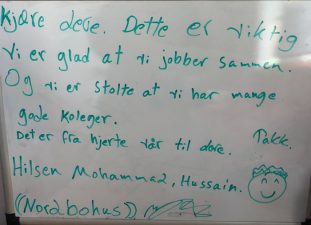 Kjære dere. Dette er viktig
Vi er glad at vi jobber sammen.
Og vi er stolte at vi har mange
gode koleger.
Det er fra hjerte vår til dere. Takk.
Hilsen Mohammad, Hussain.
((Nordbohus))